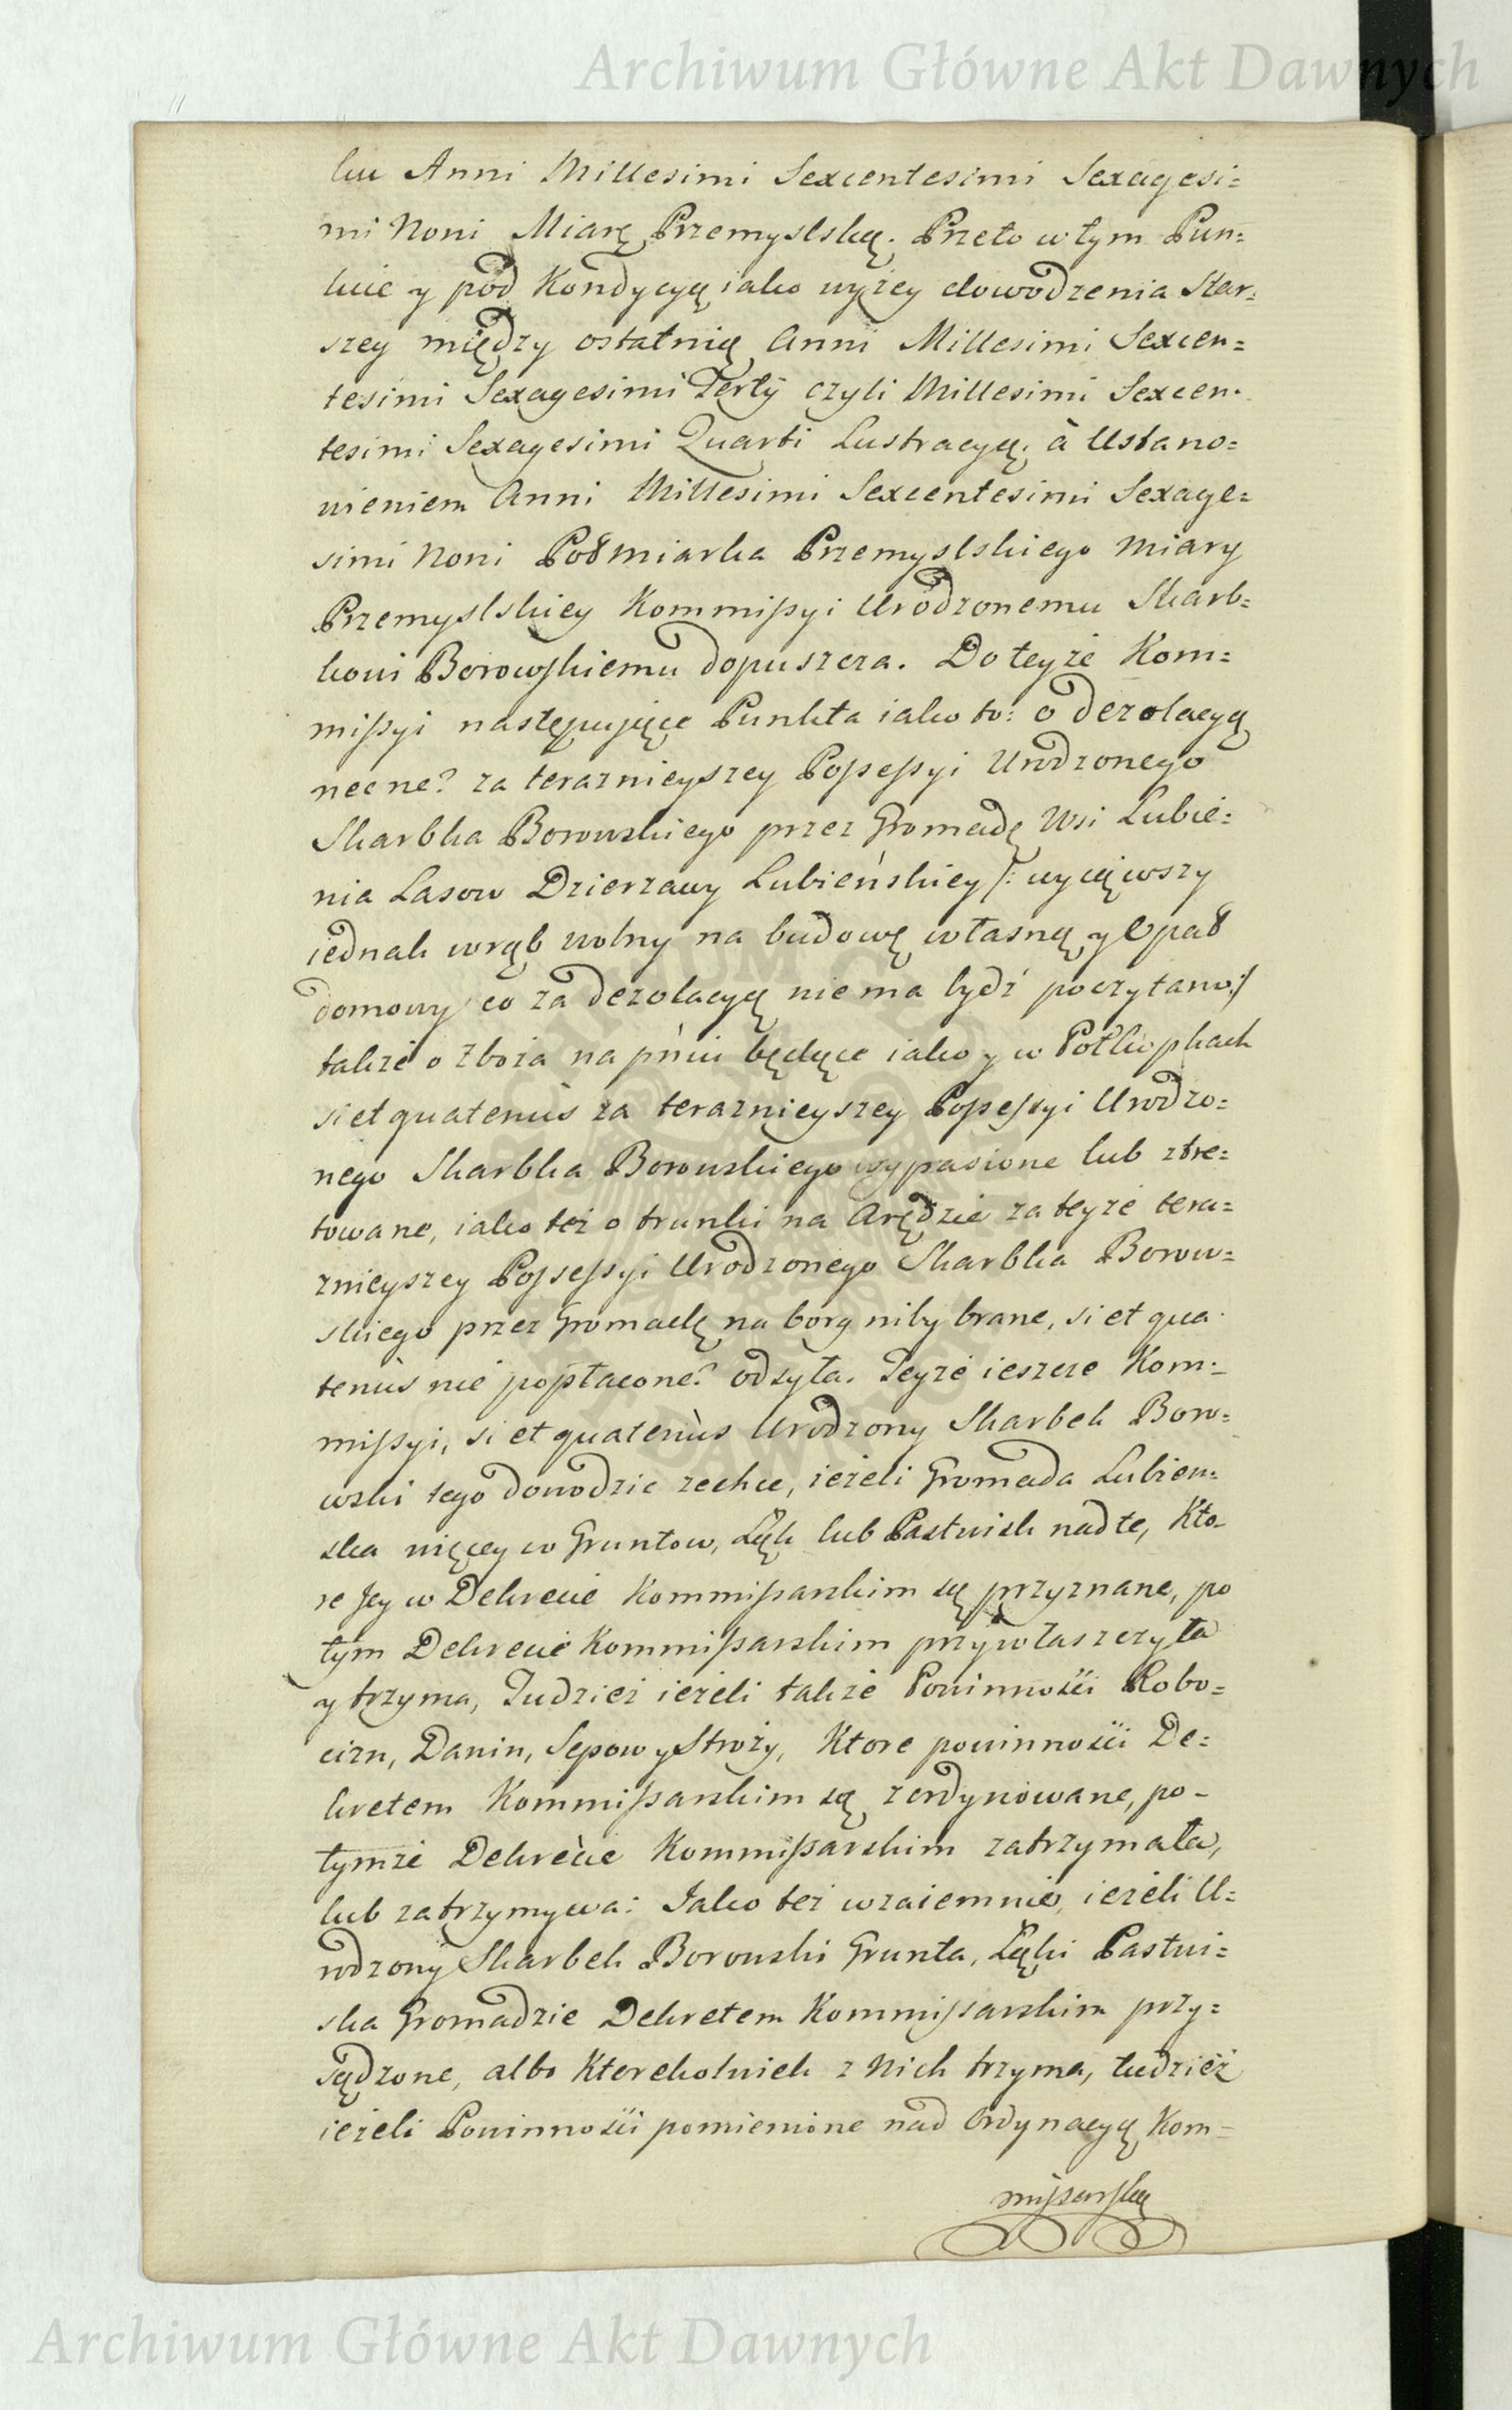 Archiwum Główne Akt Dawnych
ku Anni Millesimi Sexcentesimi Sexagesi=
mi Noni Miarę Przemyslską. Przeto w tym Pun=
kcie y pod Kondycyą iako wyżey dowodzenia Star=
szey między ostatnią Anni Millesimi Sexcen=
tesimi Sexagesimi Tertÿ czyli Millesimi Sexcen=
tesimi Sexagesimi Quarti Lustracyą, à Ustano=
wieniem Anni Millesimi Sexcentesimi Sexage=
simi Noni Podmiarka Przemyslskiego Miary
Przemyslskiey Kommissyi Urodzonemu Skarb=
kowi Borowskiemu dopuszcza. Do teyże Kom=
missyi następujące Punkta iako to: o dezolacyą
necne? za teraznieyszey Possessyi Urodzonego
Skarbka Borowskiego przez Gromadę Wsi Lubie=
nia Lasow Dzierzawy Lubieńskiey /: wyiąwszy
iednak wrąb wolny na budowę własną y Opad
domowy co za dezolacyą nie ma bydź poczytano :/
także o Zboża na pniu będące iako y w Połkopkach
si et quatenùs za teraznieyszey Possessyi Urodzo=
nego Skarbka Borowskiego wypasione lub ztre=
towane, iako też o trunki na Arędzie za teyże tera=
znieyszey Possessyi Urodzonego Skarbka Borow=
skiego przez Gromadę na borg niby brane, si et qua=
tenùs nie popłacone? odsyła. Teyże ieszcze Kom=
missyi, si et quatenùs Urodzony Skarbek Boro=
wski tego dowodzic zechce, ieżeli Gromada Lubien=
ska więcey w Gruntow, Łąk lub Pastwisk nad te, Kto=
re Jey w Dekrecie Kommissarskim są przyznane, po
tym Dekrecie Kommissarskim przywłaszczyła
y trzyma, Tudzież ieżeli także Powinności Robo=
cizn, Danin, Sepow y Stroży, Ktore powinności De=
kretem Kommissarskim są zordynowane, po=
tymże Dekrecie Kommissarskim zatrzymała,
lub zatrzymywa: Jako też wzaiemnie, ieżeli U=
rodzony Skarbek Borowski Grunta, Łąki Pastwi=
ska Gromadzie Dekretem Kommissarskim przy=
sądzone, albo Ktorekolwiek z Nich trzyma, tudzież
ieżeli Powinności pomienione nad Ordynacyą Kom=
missarską
Archiwum Główne Akt Dawnych